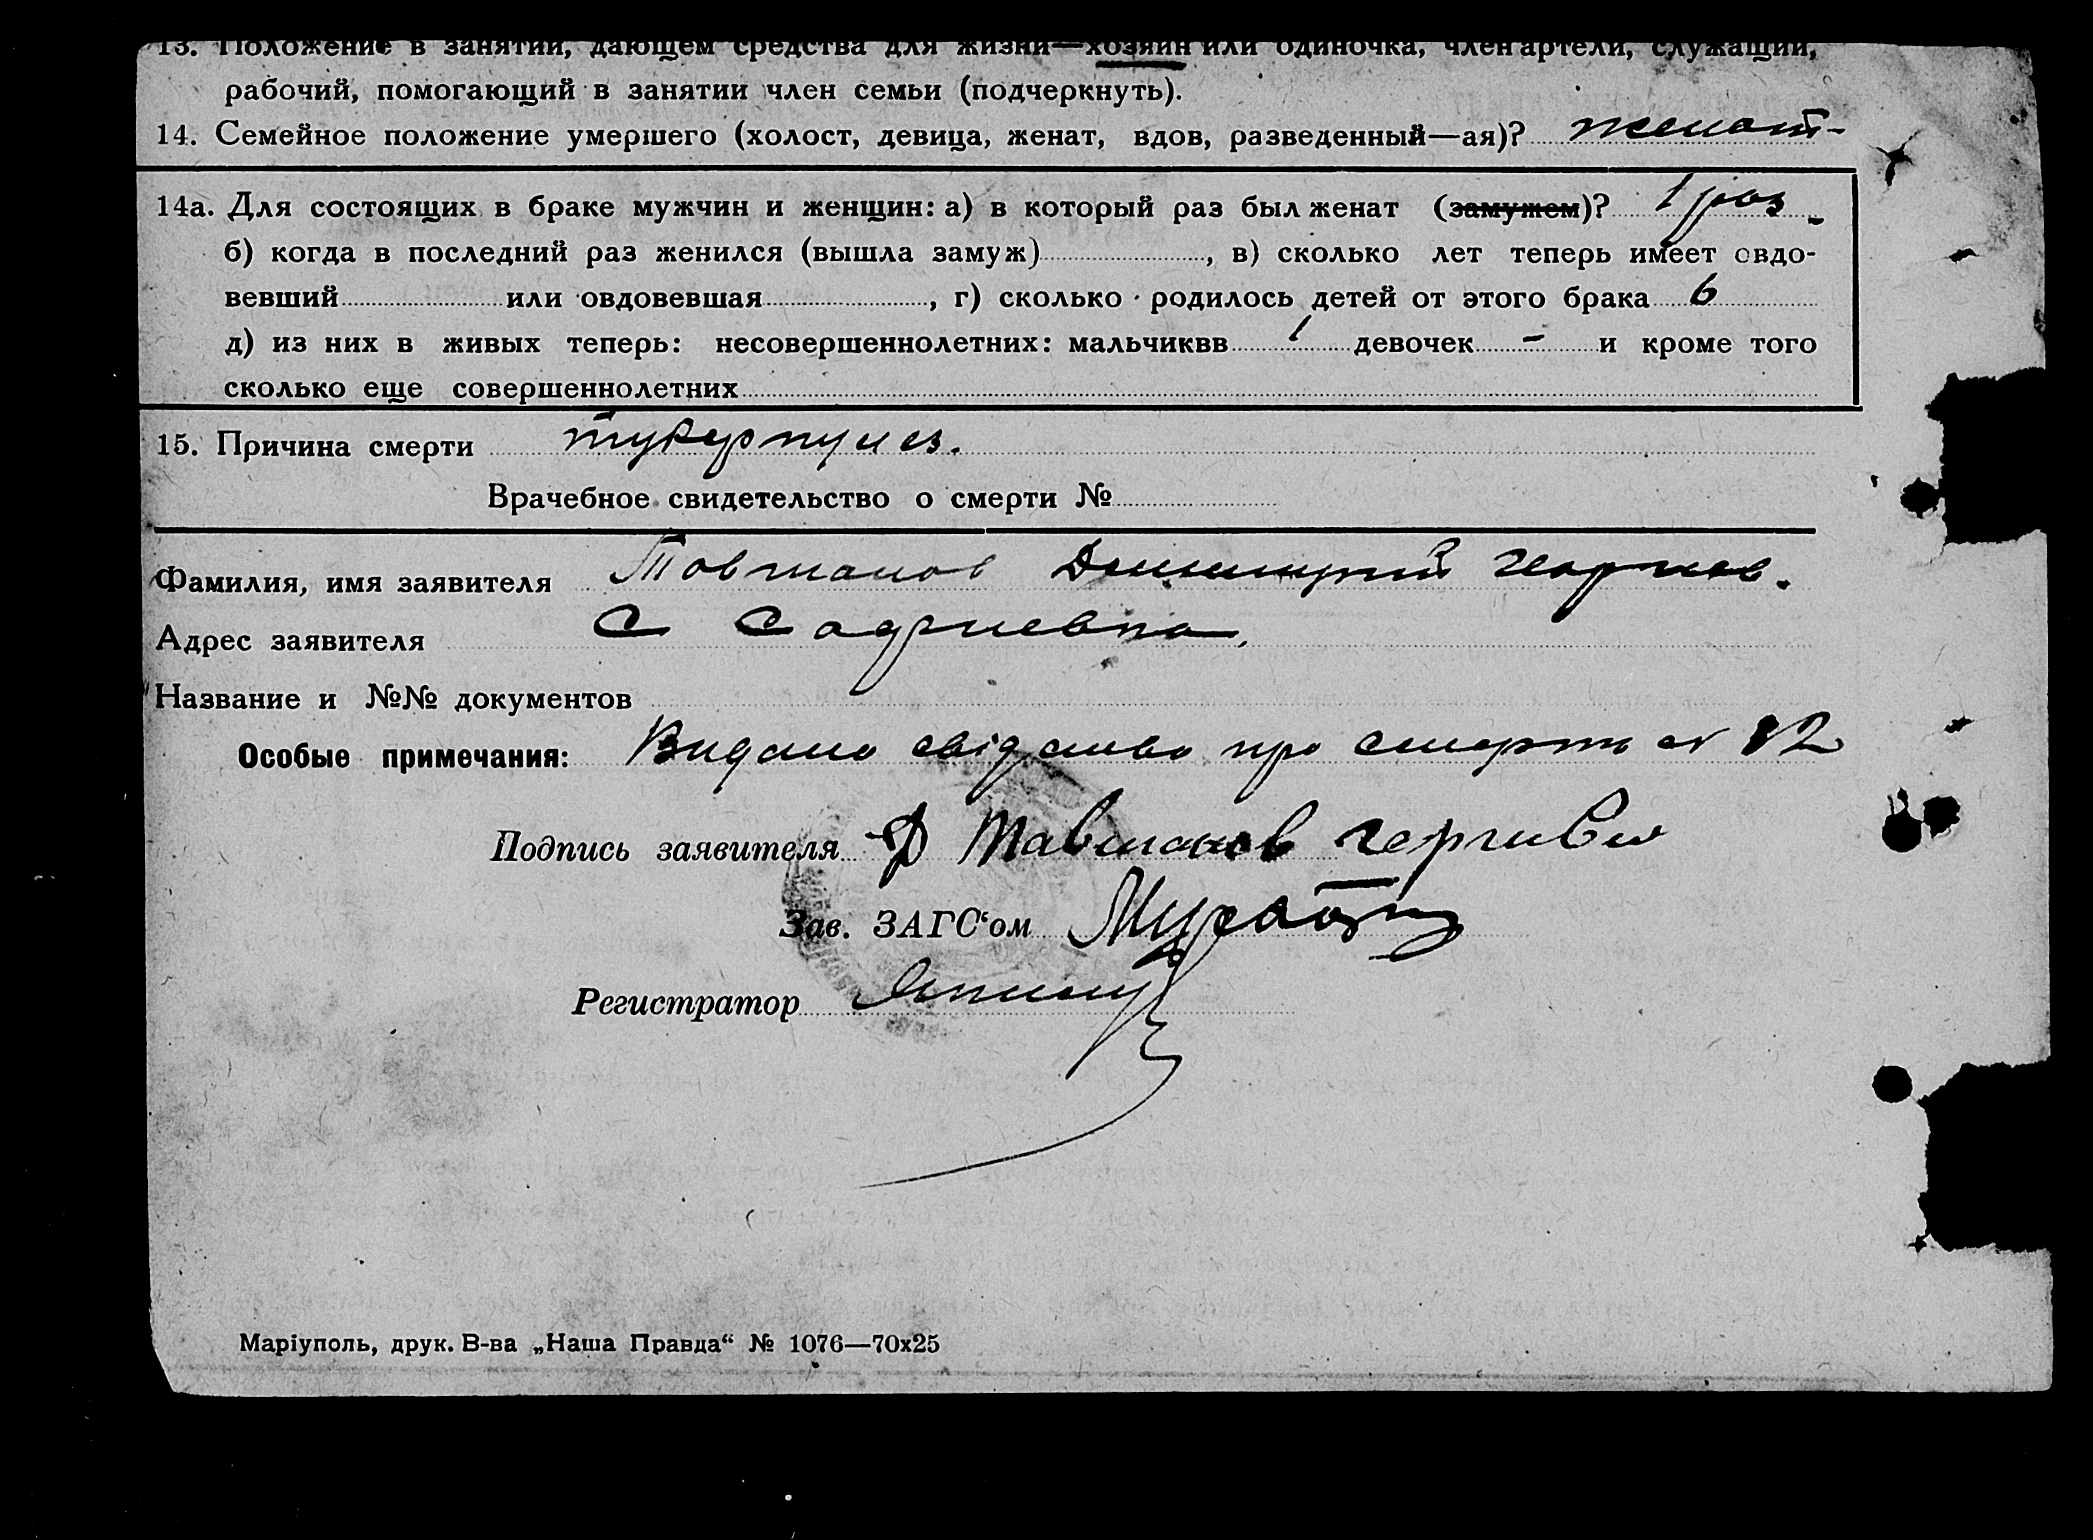 13. Положение в занятии, дающем средства для жизни—хозяин или одиночка, член артели, служащий,
рабочий, помогающий в занятии член семьи (подчеркнуть).
14. Семейное положение умершего (холост, девица, женат, вдов, разведенный—ая)? женат-
14а. Для состоящих в браке мужчин и женщин: а) в который раз был женат (замужем)? 1 раз
б) когда в последний раз женился (вышла замуж) , в) сколько лет теперь имеет овдо-
вевший или овдовевшая , г) сколько родилось детей от этого брака 6
д) из них в живых теперь: несовершеннолетних: мальчиквв 1 девочек - и кроме того
сколько еще совершеннолетних
15. Причина смерти
Врачебное свидетельство о смерти №
Фамилия, имя заявителя Товшанов
Адрес заявителя С
Название и №№ документов
Особые примечания: Видано свідоцтво про смерть № 82
Подпись заявителя
Зав. ЗАГС‘ом
Регистратор
Маріуполь, друк. В-ва „Наша Правда“ № 1076—70х25